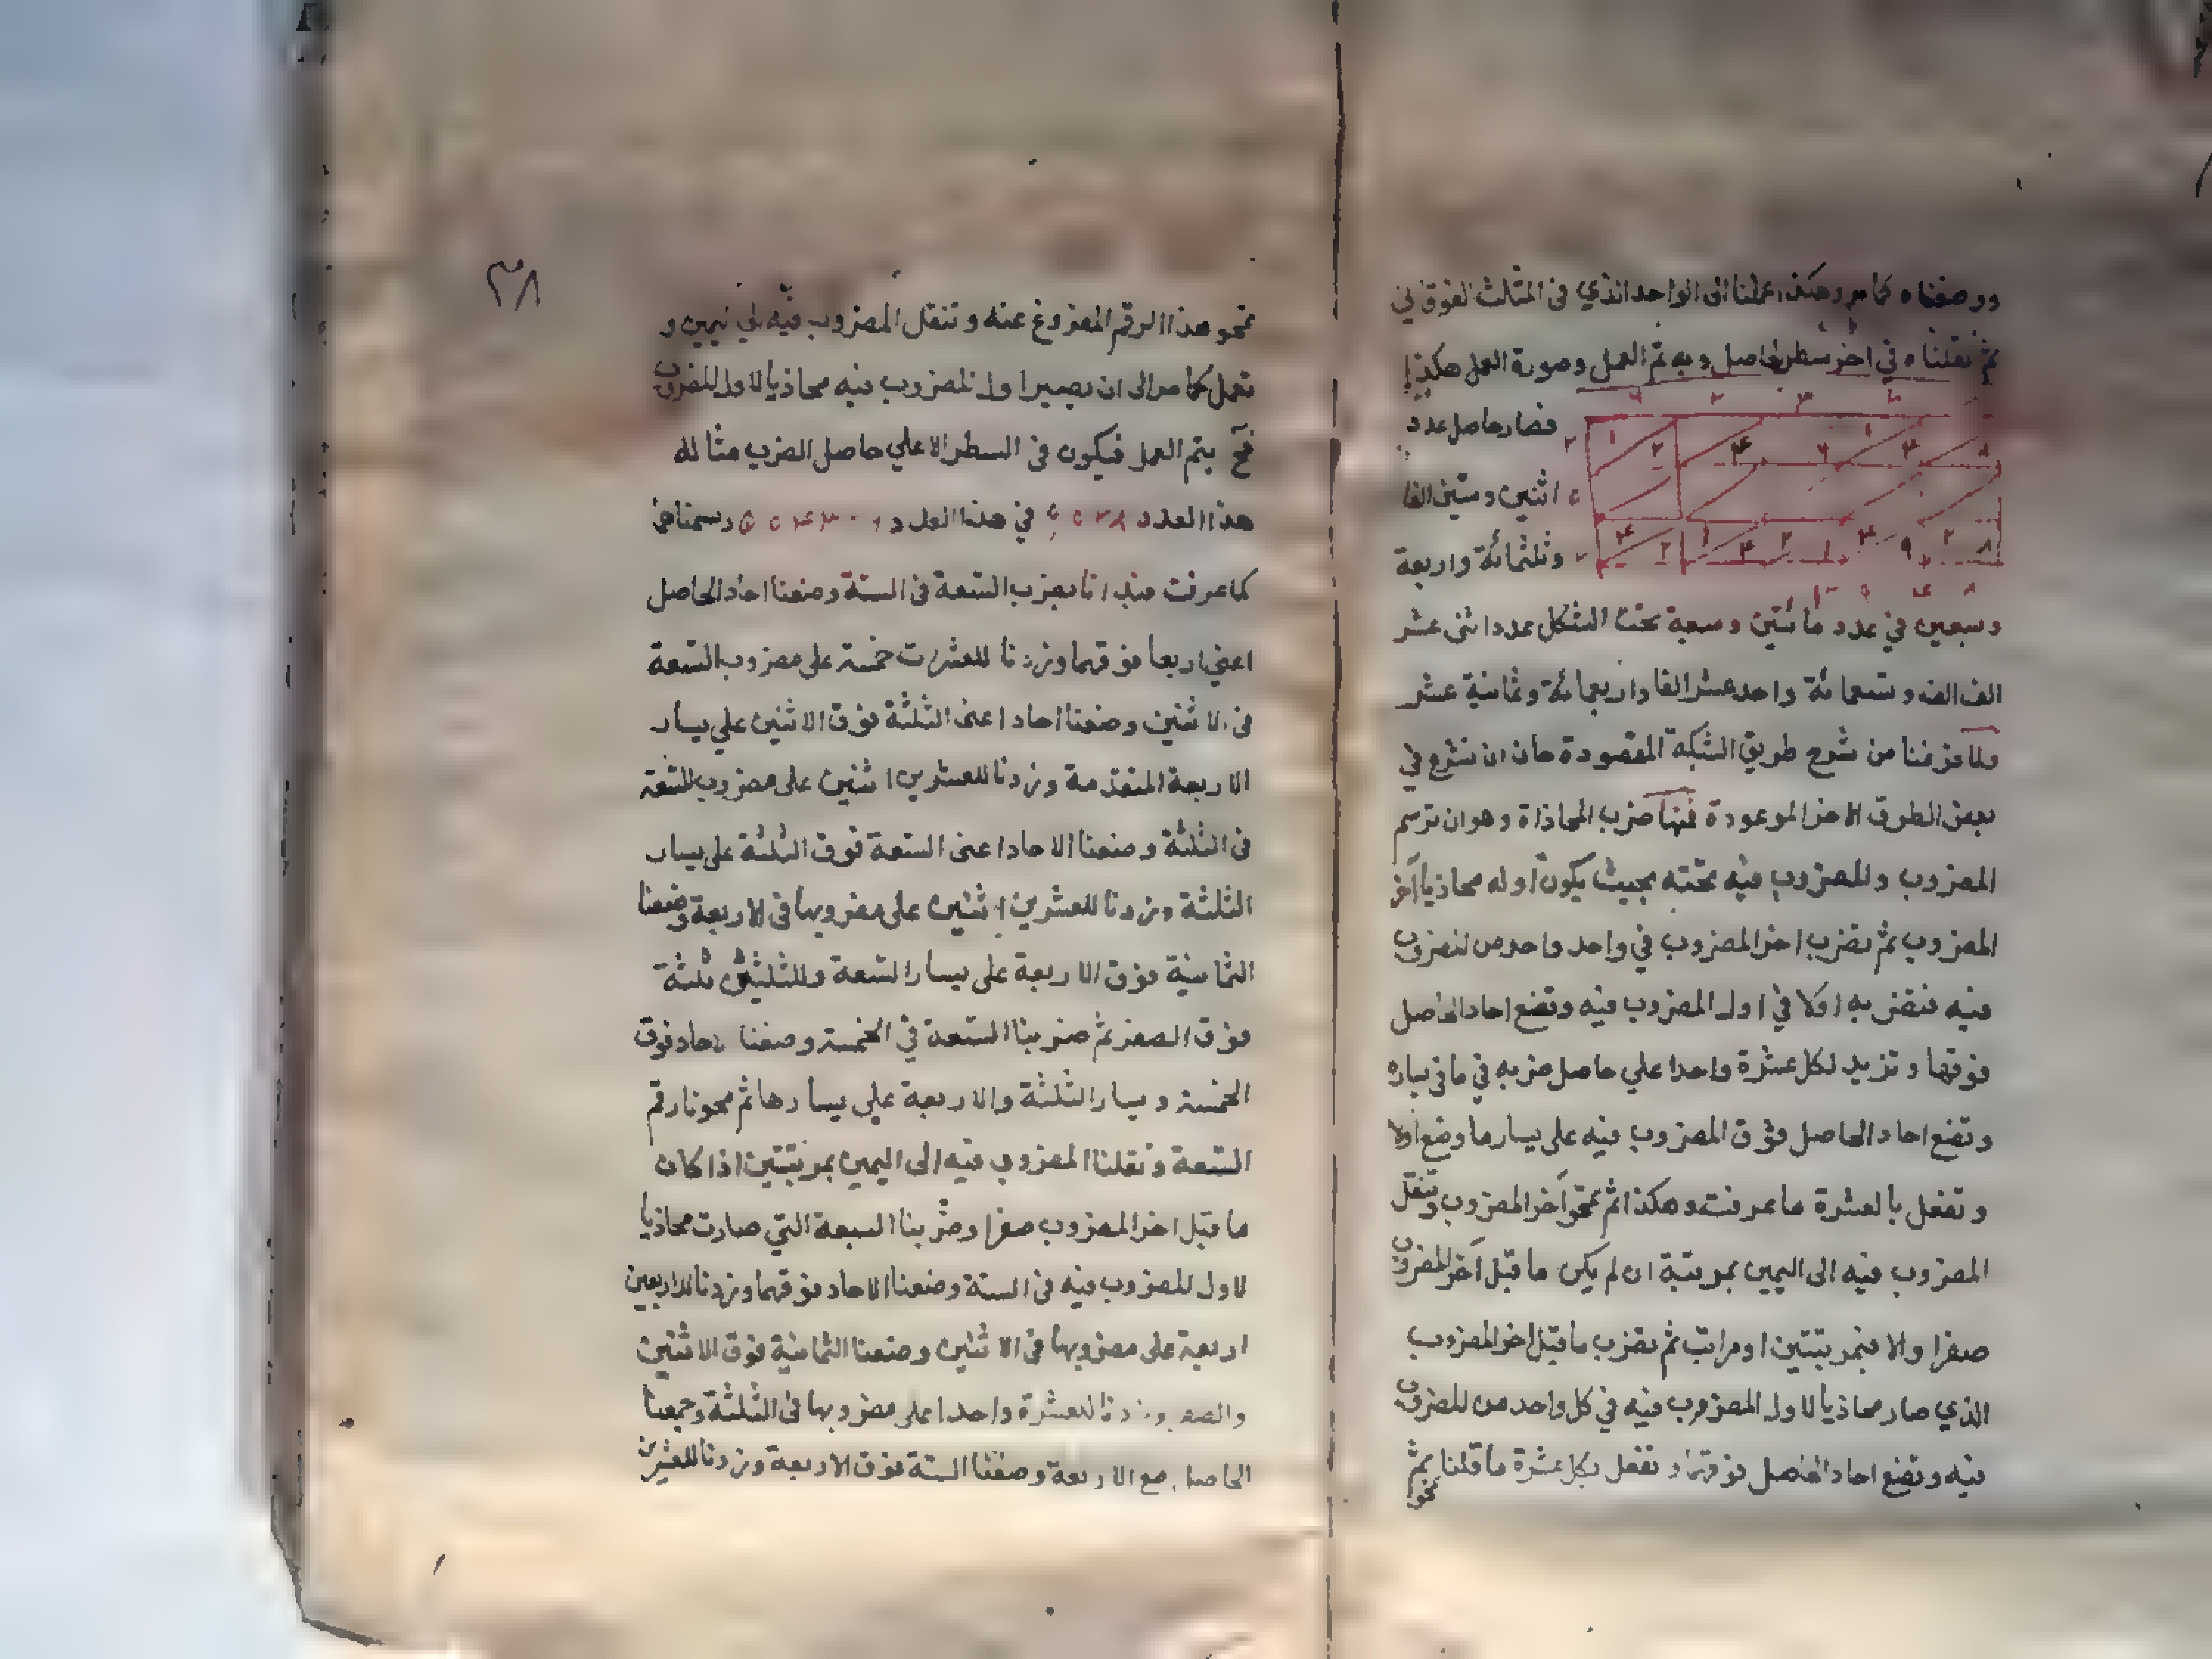 ووضعناه كما مر وهكذا عملنا الى الواحد الذي في المثلث الفوقاني
ثم نقلناه في اخر سطر الحاصل وبه تم العمل وصورة العمل هكذا
فصار حاصل عدد
اثنين وستين الفا
وثلثمائة واربعة
وسبعين في عدد مائتين وسبعة تحت الشكل عدد اثنى عشر
الف الف وتسعمائة واحد عشر الفا واربعمائة وثمانية عشر
ولما فرغنا من شرح طريق الشبكة المقصودة حان ان نشرع في
بعض الطرق الاخر الموعودة فمنها ضرب المحاذاة وهو ان ترسم
المضروب والمضروب فيه تحته بحيث يكون اوله محاذيا آخر
المضروب ثم تضرب اخر المضروب في واحد واحد من المضروب
فيه فتضربه اولا في اول المضروب فيه وتضع احاد الحاصل
فوقها وتزيد لكل عشرة واحدا علي حاصل ضربه في ما في يساره
وتضع احاد الحاصل فوق المضروب فيه على يسار ما وضع اولا
وتفعل بالعشرة ما عرفت وهكذا ثم تمحو آخر المضروب وتنقل
المضروب فيه الى اليمين بمرتبة ان لم يكن ما قبل آخر المضروب
صفرا والا فبمرتبتين او مراتب ثم تضرب ما قبل اخر المضروب
الذي صار محاذيا لاول المضروب فيه في كل واحد من المضروب
فيه وتضع احاد الحاصل فوقها وتفعل بكل عشرة ما قلنا ثم
تمحو
٣٨
تمحو هذا الرقم المفروغ عنه وتنقل المضروب فيه الي اليمين و
تعمل كما مر الى ان يصير اول المضروب فيه محاذيا لاول المضروب
فح يتم العمل فيكون في السطر الاعلي حاصل الضرب مثاله
هذا العدد في هذا العدد رسمناها
كما عرفت فبدانا بضرب التسعة في الستة وضعنا احاد الحاصل
اعني اربعا فوقها وزدنا للعشرات خمسة على مضروب التسعة
في الاثنين وضعنا احاد اعنى الثلثة فوق الاثنين علي يسار
الاربعة المتقدمة وزدنا للعشرين اثنين على مضروب التسعة
في الثلثة وضعنا الاحاد اعنى التسعة فوق الثلثة على يسار
الثلثة وزدنا للعشرين اثنين على مضروبها في الاربعة وضعنا
الثمانية فوق الاربعة على يسار التسعة وللثلثين ثلثة
فوق الصفر ثم ضربنا التسعة في الخمسة وضعنا الاحاد فوق
الخمسة ويسار الثلثة والاربعة علي يسارها ثم محونا رقم
التسعة ونقلنا المضروب فيه الى اليمين بمرتبتين اذا كان
ما قبل اخر المضروب صفرا وضربنا السبعة التي صارت محاذيا
لاول المضروب فيه في الستة وضعنا الاحاد فوقها وزدنا للاربعين
اربعة على مضروبها في الاثنين وضعنا الثمانية فوق الاثنين
والصفر وزدنا للعشرة واحدا على مضروبها في الثلثة وجمعنا
الحاصل مع الاربعة وضعنا الستة فوق الاربعة وزدنا للعشرين